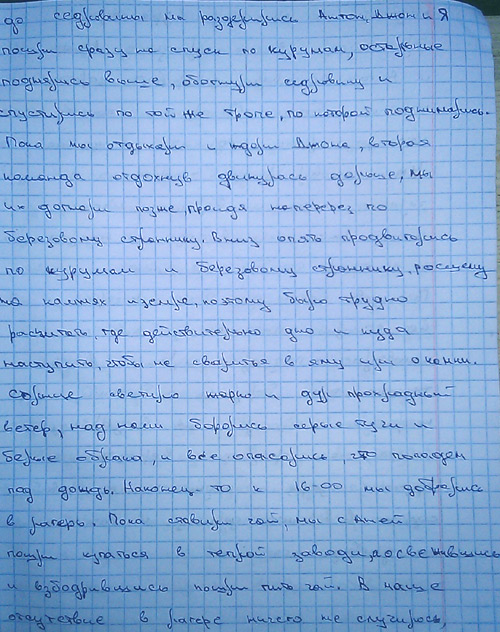 до седловины мы разделились Антон, Джон и Я
пошли сразу на спуск по курумам, остальные
поднялись выше, обогнули седловину и
спустились по той же тропе, по которой поднимались.
Пока мы отдыхали и ждали Джона, вторая
команда отдохнув двинулась дальше, мы
их догнали позже, пройдя наперерез по
березовому стланнику. Вниз опять продвигались
по курумам и березовому стланнику, росшему
на камнях и земле, поэтому было трудно
расчитать, где действительно дно и куда
наступить, чтобы не свалиться в яму или о камни.
Солнце светило жарко и дул прохладный
ветер, над нами боролись серые тучи и
белые облака, и все опасались, что попадем
под дождь. Наконец-то к 16-00 мы добрались
в лагерь. Пока ставили чай, мы с Аней
пошли купаться в теплой заводи, а освежившись
и взбодрившись пошли пить чай. В наше
отсутствие в лагере ничего не случилось,